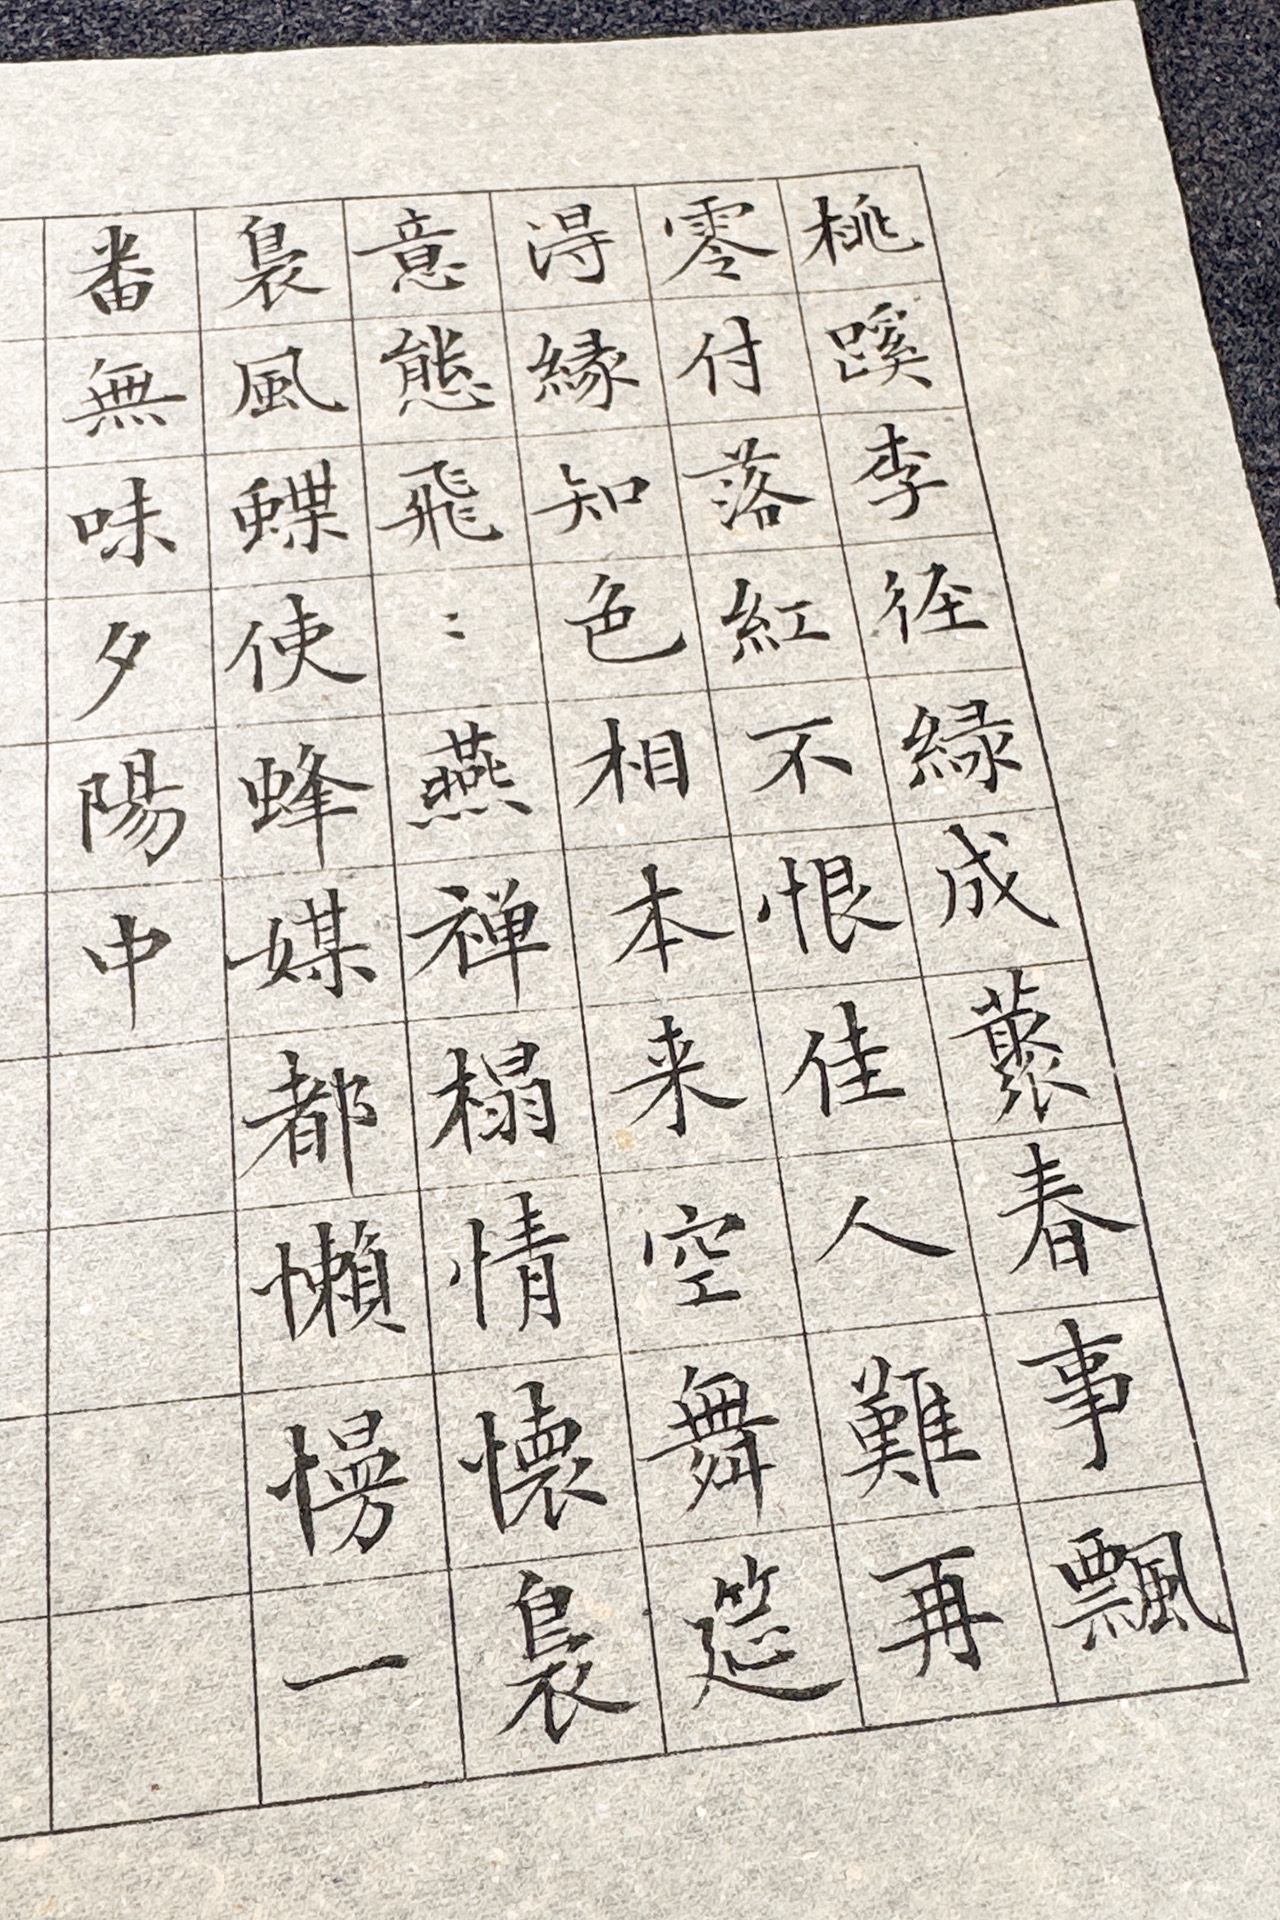 桃蹊李径緑成藂春事飄
零付落紅不恨佳人難再
淂縁知色相本来空舞筵
意態飛〻燕禅榻情懷裊
裊風蝶使蜂媒都懶慢一
番無味夕陽中